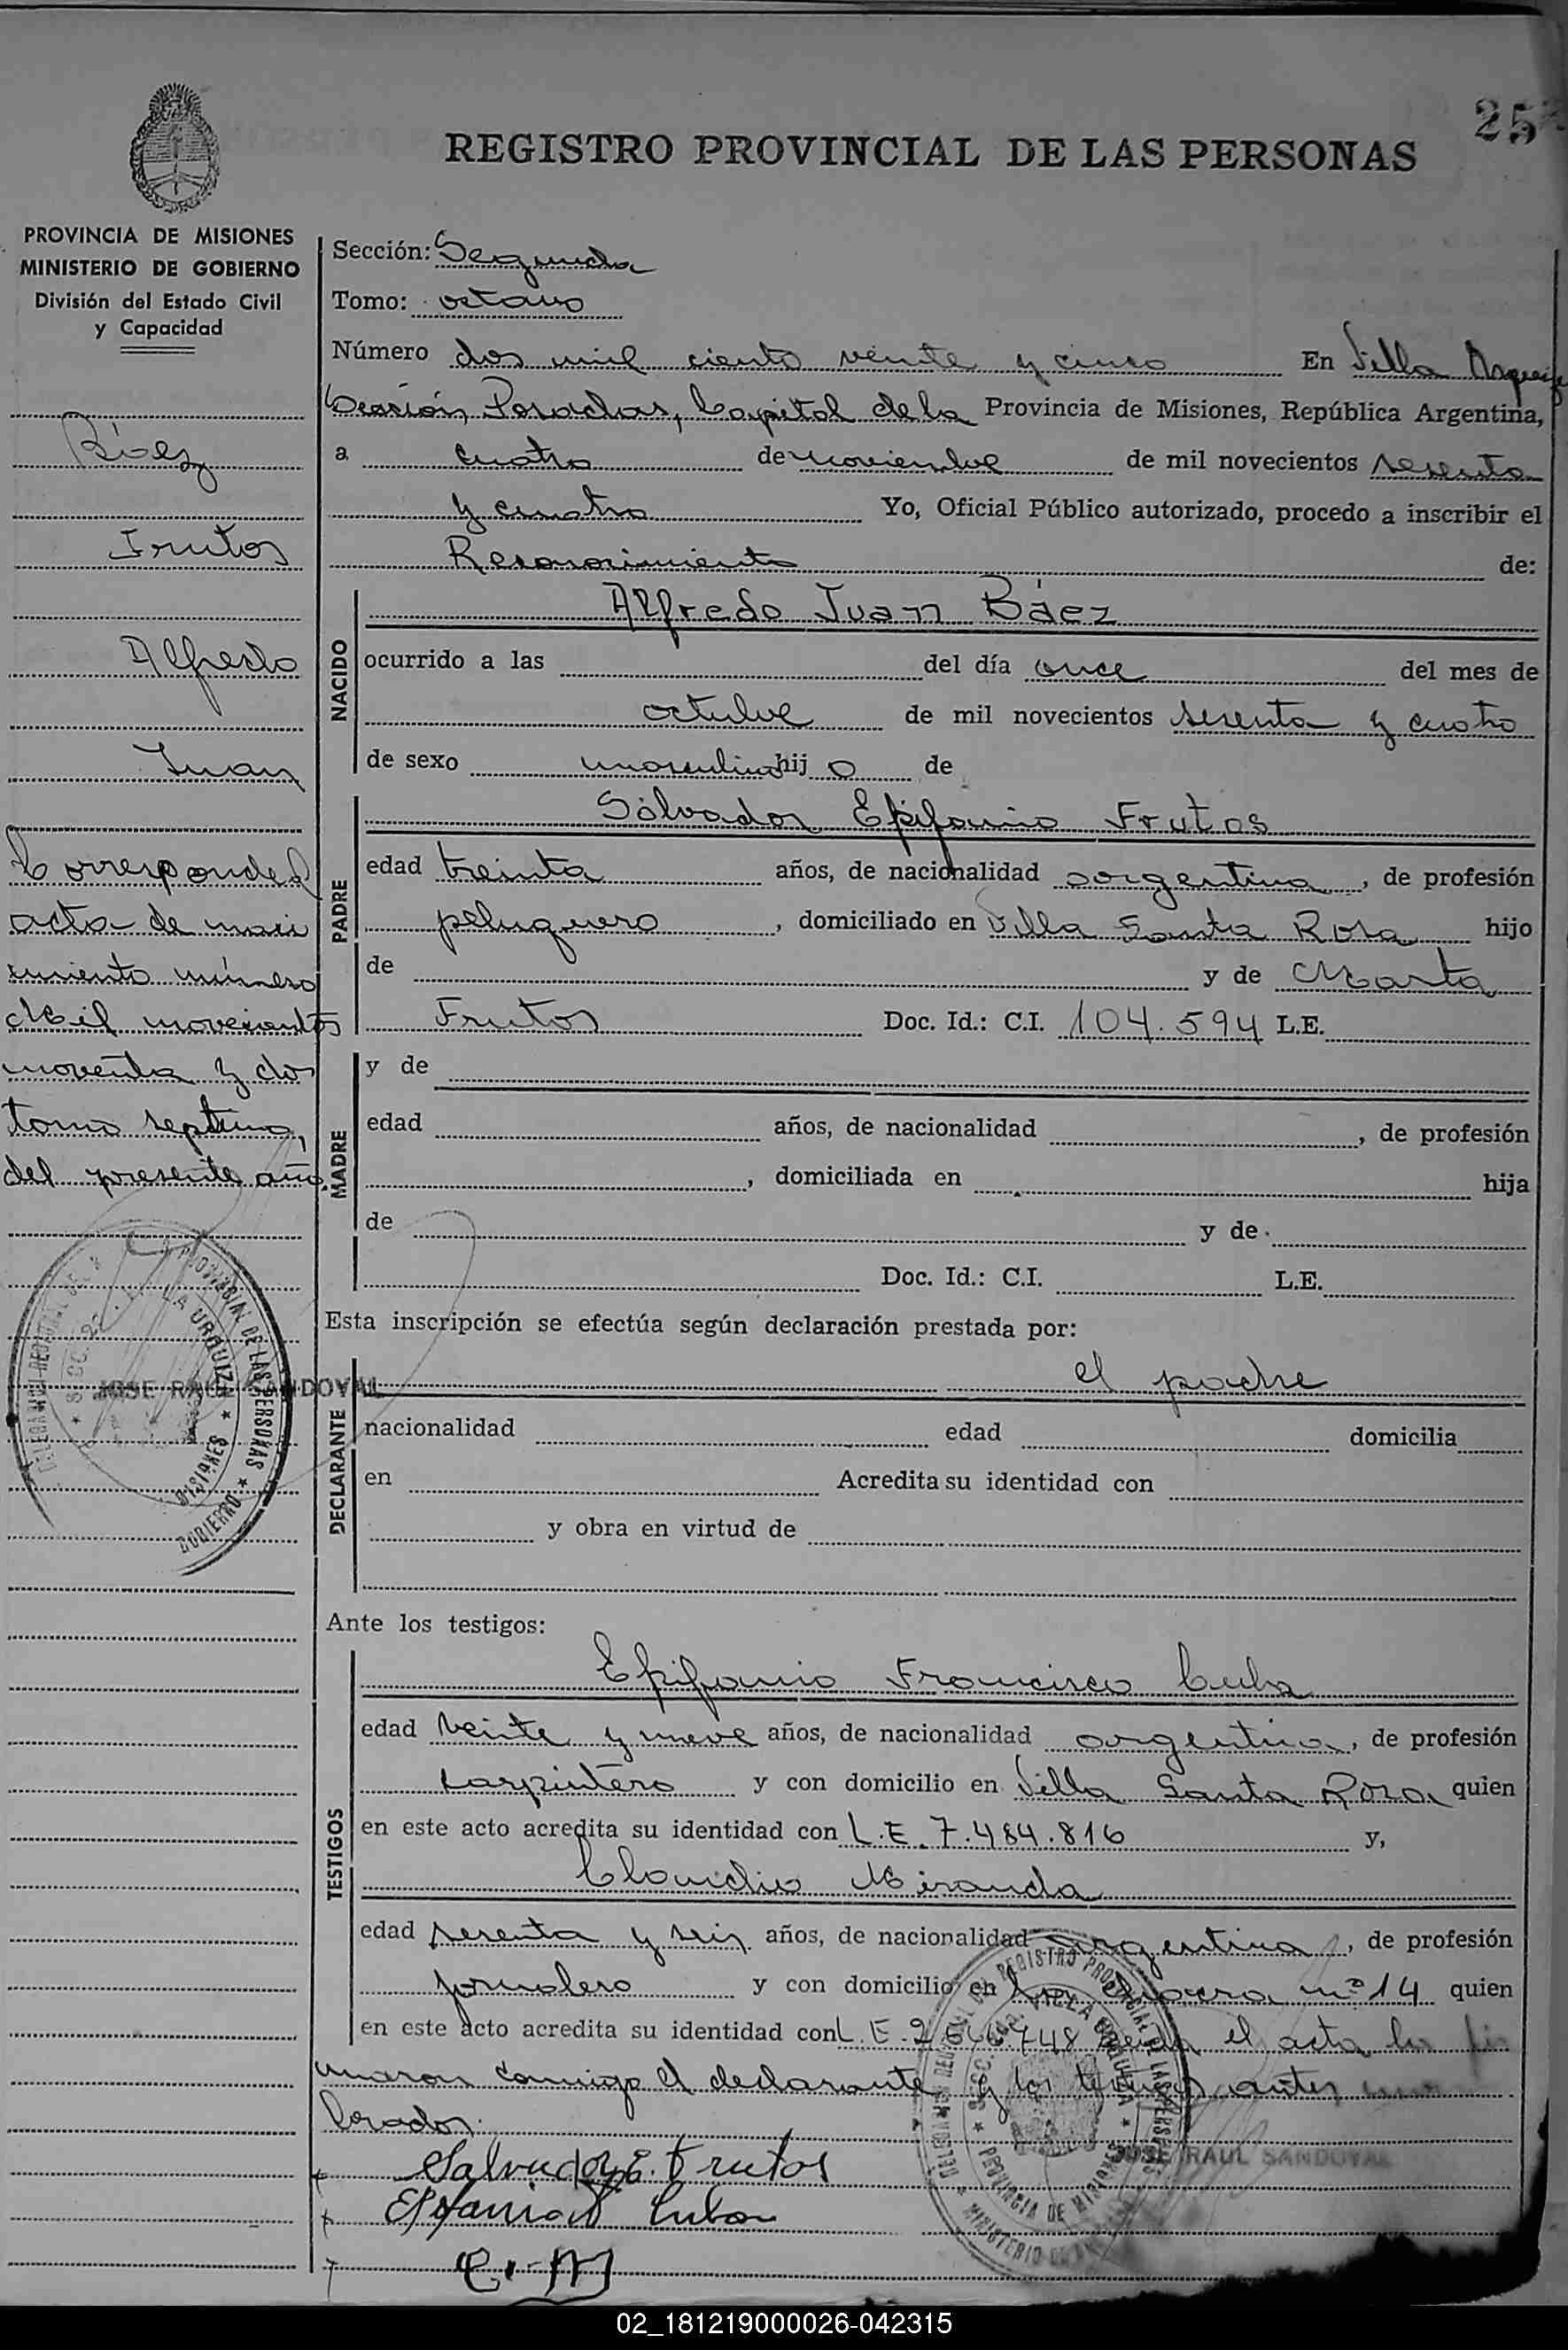 25
REGISTRO PROVINCIAL DE LAS PERSONAS
PROVINCIA DE MISIONES
MINISTERIO DE GOBIERNO
División del Estado Civil
y Capacidad
Báez
Frutos
Alfredo
Juan
Corresponde al
acta de naci
miento número
Mil novecientos
noventa y dos
tomo septimo,
del presente año.
JOSE RAUL SANDOVAL
Sección: Segunda
Tomo: octavo
Número dos mil ciento veinte y cinco En Villa Urquiza
Sección, Posadas, Capital de la Provincia de Misiones, República Argentina,
a cuatro de noviembre de mil novecientos sesenta
y cuatro Yo, Oficial Público autorizado, procedo a inscribir el
Reconocimiento de:
NACIDO
Alfredo Juan Báez
ocurrido a las del día once del mes de
octubre de mil novecientos sesenta y cuatro
de sexo masculino hij o de
PADRE
Salvador Epifanio Frutos
edad treinta años, de nacionalidad argentina, de profesión
peluquero, domiciliado en Villa Santa Rosa hijo
de y de Marta
Frutos Doc. Id.: C.I. 104.594 L.E.
MADRE
y de
edad años, de nacionalidad , de profesión
, domiciliada en hija
de y de
Doc. Id.: C.I. L.E.
Esta inscripción se efectúa según declaración prestada por:
DECLARANTE
el padre
nacionalidad edad domicilia
en Acredita su identidad con
y obra en virtud de
Ante los testigos:
TESTIGOS
Epifanio Francisco Cuba
edad veinte y nueve años, de nacionalidad argentina, de profesión
carpintero y con domicilio en Villa Santa Rosa quien
en este acto acredita su identidad con L.E. 7.484.816 y,
Claudio Miranda
edad sesenta y seis años, de nacionalidad argentina, de profesión
jornalero y con domicilio en La Chacra nº 14 quien
en este acto acredita su identidad con L.E. el acta la fir
maron conmigo el declarante y los testigos antes
brados.
JOSE RAUL SANDOVAL
Salvador E. Frutos
Epifanio Cuba
C. M
02_181219000026-042315